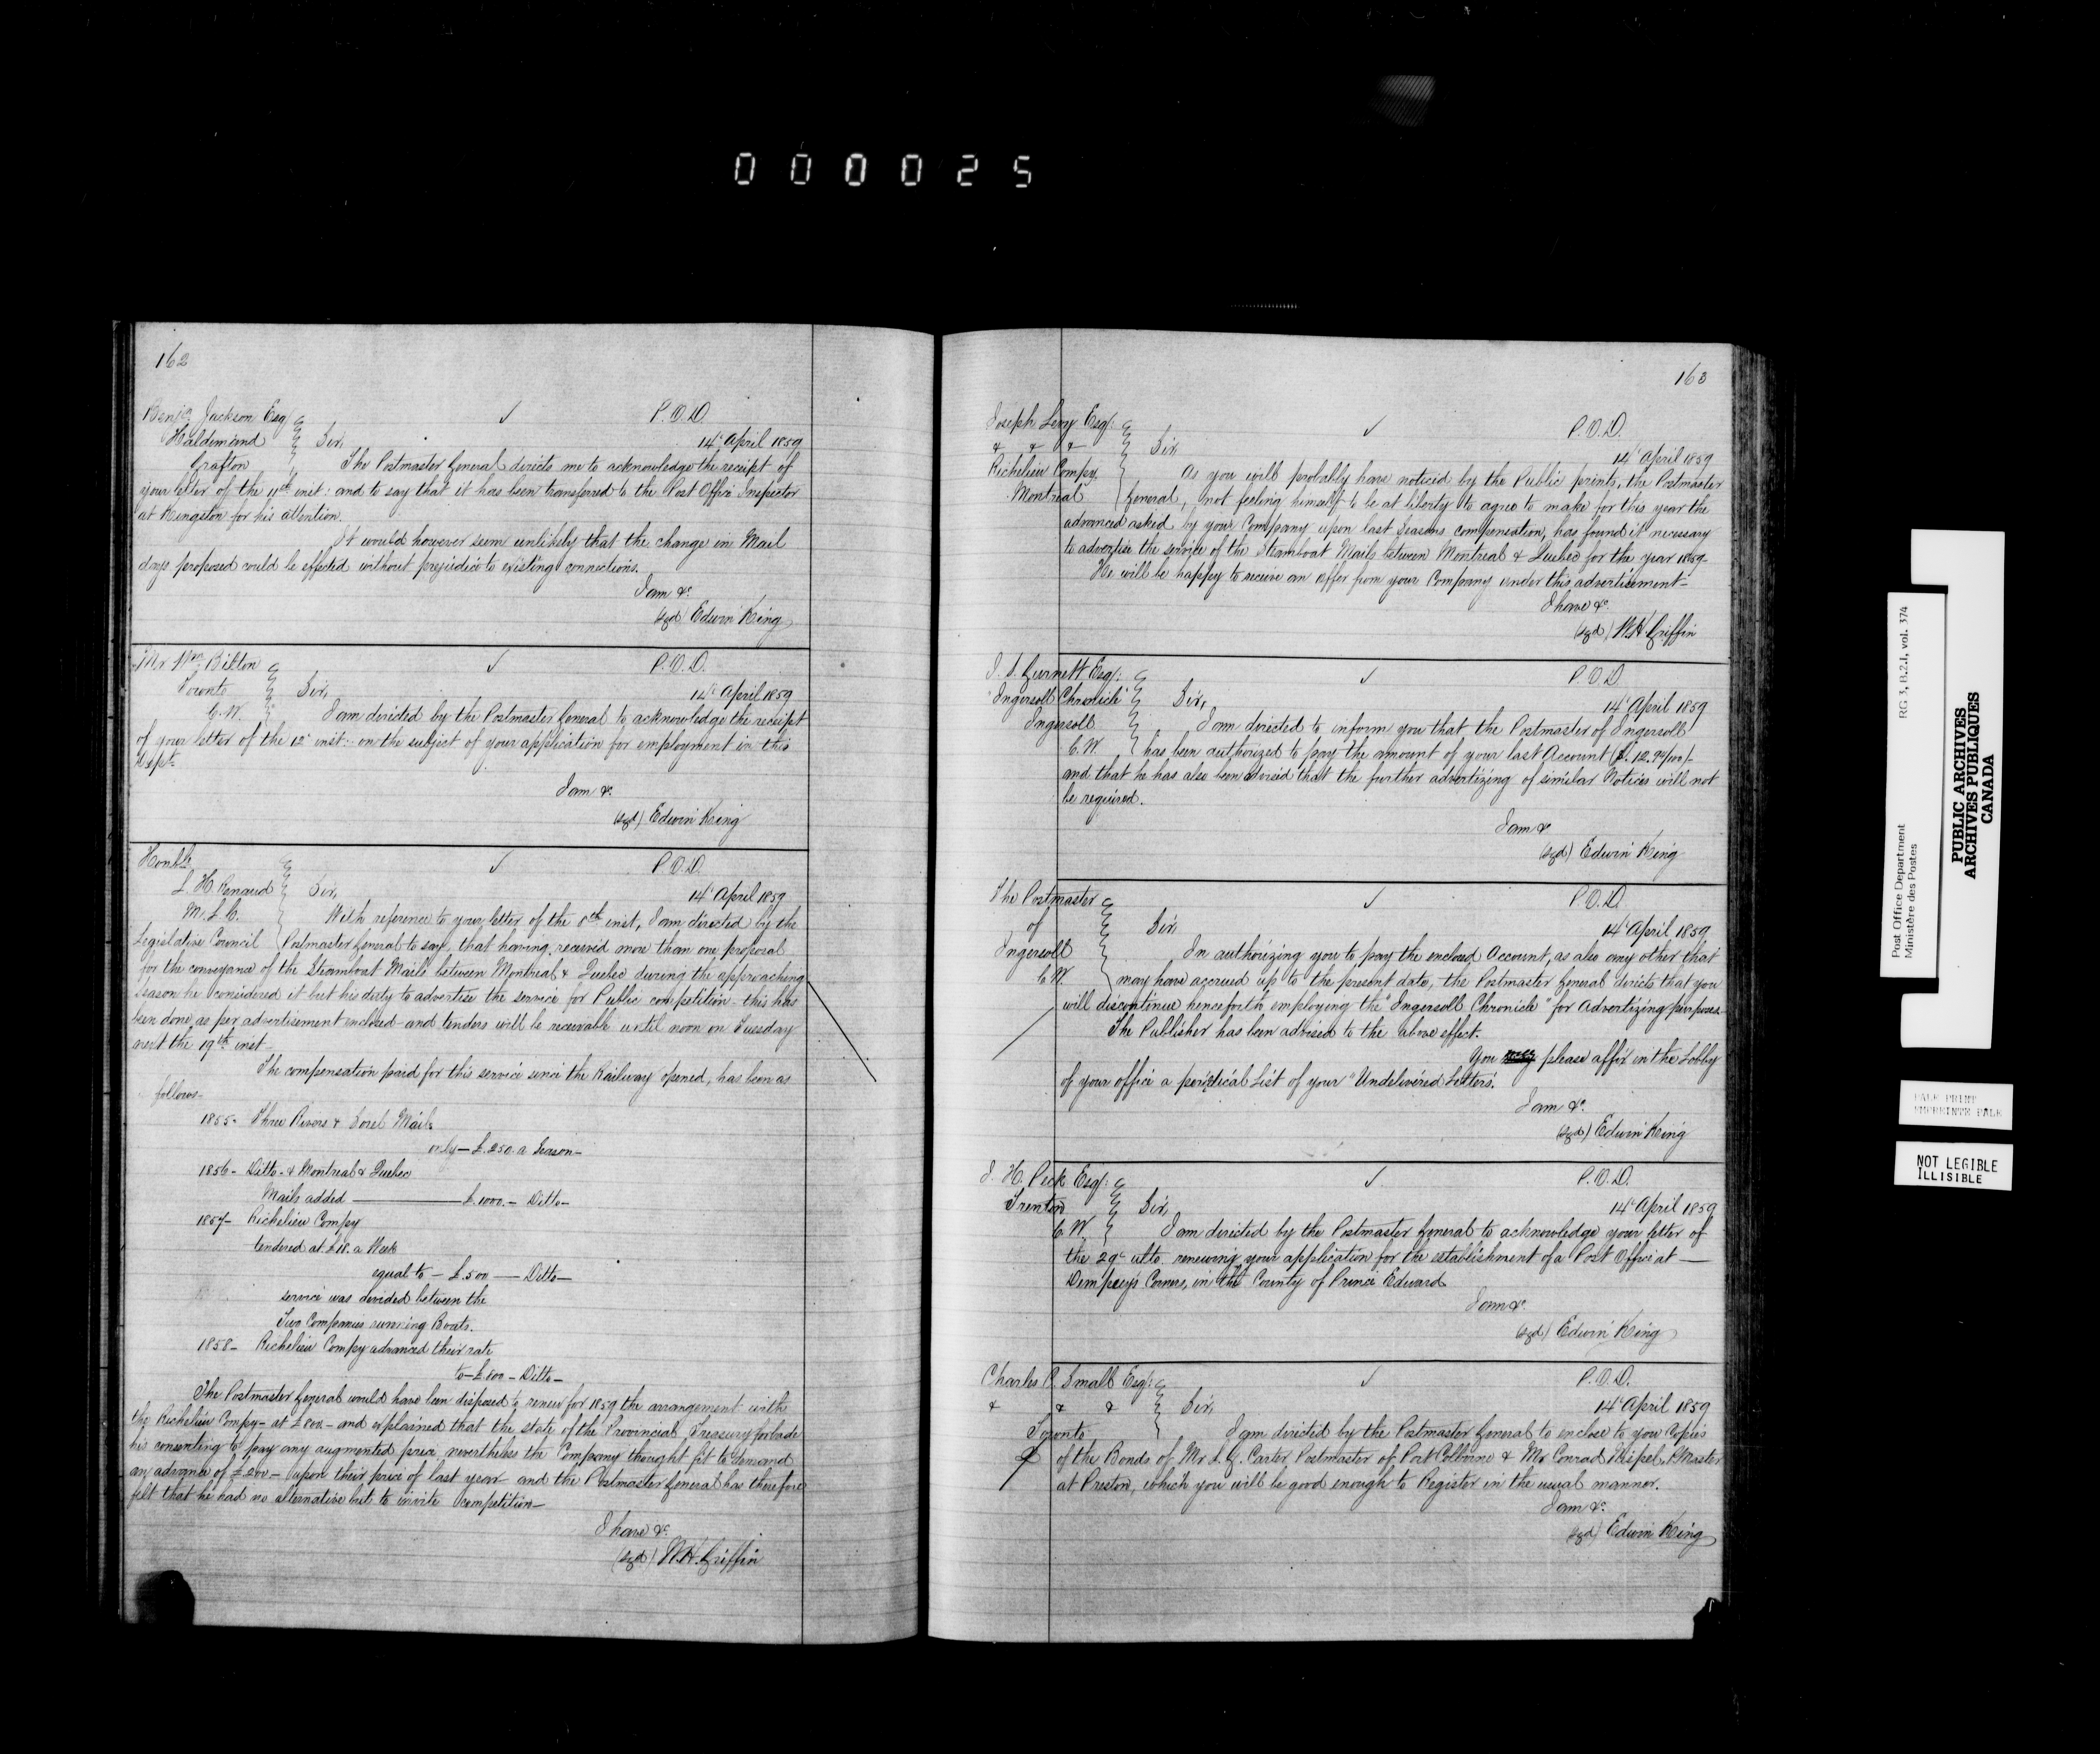 000025
162
Benjn Jackson Esq
Haldimand
Grafton
P.O.D.
14th April 1859
Sir,
The Postmaster General directs me to acknowledge the receipt of
your letter of the 11th inst: and to say that it has been transferred to the Post Office Inspector
at Kingston for his attention.
It would however seem unlikely that the change in Mail
days proposed could be effected without prejudice to existing connections.
I am &c
(sgd) Edwin King
Mr Wm Bilton
Toronto
C.W.
P.O.D.
14th April 1859
Sir,
I am directed by the Postmaster General to acknowledge the receipt
of your letter of the 12th inst: on the subject of your application for employment in this
Dept.
I am &c
(sgd) Edwin King
Honble
L. H. Renaud
M.L.C.
Legislative Council
P.O.D.
14th April 1859
Sir,
With reference to your letter of the 8th inst, I am directed by the
Postmaster General to say, that having received more than one proposal
for the conveyance of the Steamboat Mails between Montreal & Quebec during the approaching
season he considered it but his duty to advertise the service for Public competition - this has
been done as per advertisement enclosed - and tenders will be receivable until noon on Tuesday
next the 19th inst -
The compensation paid for this service since the Railway opened, has been as
follows -
1855 - Three Rivers & Sorel Mails
only - £250 a Season -
1856 - Ditto - & Montreal & Quebec
Mails added - £1000 - Ditto -
1857 - Richelieu Compy
tendered at £18. a Week
equal to - £500 - Ditto -
service was divided between the
Two Companies running Boats.
1858 - Richelieu Compy advanced their rate
to - £800 - Ditto -
The Postmaster General would have been disposed to renew for 1859 the arrangement with
the Richelieu Compy - at £800 - and explained that the state of the Provincial Treasury forbade
his consenting to pay any augmented price nevertheless the Company thought fit to demand
an advance of £200 - upon their price of last year - and the Postmaster General has therefore
felt that he had no alternative but to invite competition -
I have &c
(sgd) W.H. Griffin
163
Joseph Levy Esq:
& & &
Richelieu Compy.
Montreal
P.O.D.
14th April 1859
Sir,
As you will probably have noticed by the Public prints, the Postmaster
General, not feeling himself to be at liberty to agree to make for this year the
advance asked by your Company upon last Seasons compensation, has found it necessary
to advertise the service of the Steamboat Mails between Montreal & Quebec for the year 1859 -
He will be happy to receive an offer from your Company under this advertisement -
I have &c
(sgd) W.H. Griffin
J. S. Gurnett Esq:
"Ingersoll Chronicle"
Ingersoll
C.W.
P.O.D.
14th April 1859
Sir,
I am directed to inform you that the Postmaster of Ingersoll
has been authorized to pay the amount of your last Account
and that he has also been advised that the further advertizing of similar Notices will not
be required.
I am &c
(sgd) Edwin King
The Postmaster
of
Ingersoll
C.W.
P.O.D.
14th April 1859
Sir,
In authorizing you to pay the enclosed Account, as also any other that
may have accrued up to the present date, the Postmaster General directs that you
will discontinue henceforth employing the "Ingersoll Chronicle" for Advertizing purposes -
The Publisher has been advised to the above effect.
You please affix in the Lobby
of your office a periodical List of your "Undelivered Letters".
I am &c
(sgd) Edwin King
J. H. Peck Esq:
Trenton
C.W.
P.O.D.
14th April 1859
Sir,
I am directed by the Postmaster General to acknowledge your letter of
the 29th ulto. renewing your application for the establishment of a Post Office at -
Dempsey's Corners, in the County of Prince Edward.
I am &c
(sgd) Edwin King
Charles C. Small Esq:
& & &
Toronto
P.O.D.
14th April 1859
Sir,
I am directed by the Postmaster General to enclose to you Copies
of the Bonds of Mr L. G. Carter Postmaster of Port Colborne & Mr Conrad PMaster
at Preston, which you will be good enough to Register in the usual manner.
I am &c
(sgd) Edwin King
Post Office Department
Ministère des Postes
RG 3, B.2.1, vol. 374
PUBLIC ARCHIVES
ARCHIVES PUBLIQUES
CANADA
PALE PRINT
EMPREINTE PALE
NOT LEGIBLE
ILLISIBLE